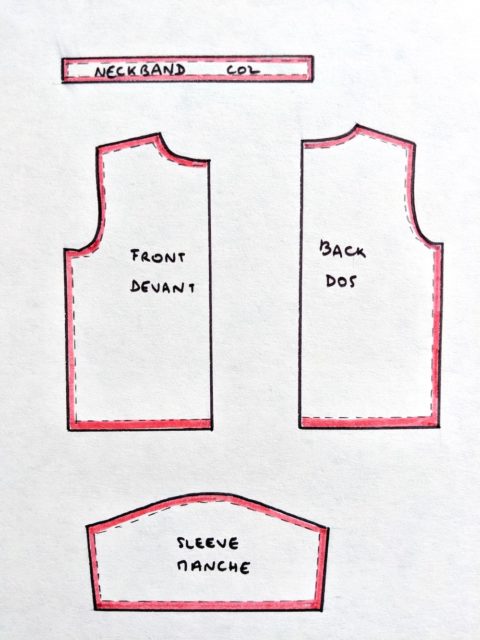 NECKBAND COL
FRONT
DEVANT
BACK
DOS
SLEEVE
MANCHE